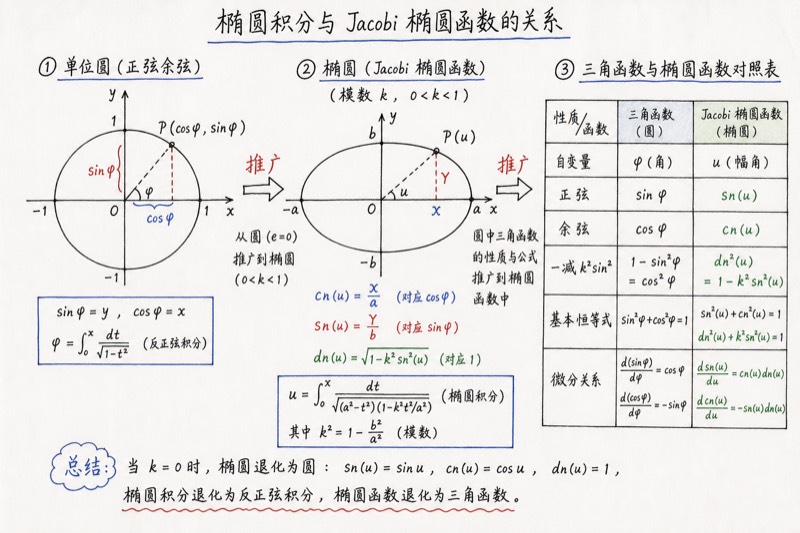 椭圆积分与 Jacobi 椭圆函数的关系
① 单位圆 (正弦余弦)
y
1
P(cosφ, sinφ)
sinφ
φ
-1
O
cosφ
1
x
-1
sinφ = y , cosφ = x
φ = ∫₀ˣ dt/√(1-t²) (反正弦积分)
推广
从圆 (e=0)
推广到椭圆
(0<k<1)
② 椭圆 (Jacobi 椭圆函数)
(模数 k , 0<k<1)
y
b
P(u)
Y
u
-a
O
x
a
x
-b
cn(u) = x/a (对应 cosφ)
sn(u) = Y/b (对应 sinφ)
dn(u) = √(1-k²sn²(u)) (对应 1)
u = ∫₀ˣ dt/√((a²-t²)(1-k²t²/a²)) (椭圆积分)
其中 k² = 1 - b²/a² (模数)
推广
图中三角函数
的性质与公式
推广到椭圆
函数中
③ 三角函数与椭圆函数对照表
性质/函数 三角函数 (圆) Jacobi 椭圆函数 (椭圆)
自变量 φ (角) u (幅角)
正弦 sin φ sn(u)
余弦 cos φ cn(u)
一减 k²sin² 1 - sin²φ = cos²φ dn²(u) = 1 - k²sn²(u)
基本恒等式 sin²φ+cos²φ=1 sn²(u)+cn²(u)=1
dn²(u)+k²sn²(u)=1
微分关系 d(sinφ)/dφ = cosφ d sn(u)/du = cn(u)dn(u)
d(cosφ)/dφ = -sinφ d cn(u)/du = -sn(u)dn(u)
总结: 当 k=0 时, 椭圆退化为圆: sn(u)=sinu, cn(u)=cosu, dn(u)=1,
椭圆积分退化为反正弦积分, 椭圆函数退化为三角函数。